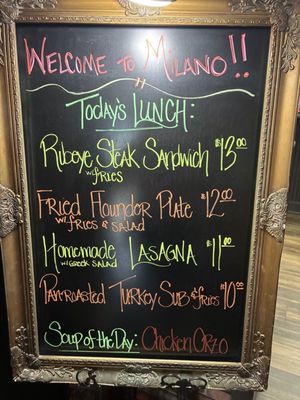 Welcome to Milano!!
Today's Lunch:
Ribeye Steak Sandwich $13.00
w/ fries
Fried Flounder Plate $12.00
w/ fries & salad
Homemade Lasagna $11.00
w/ Greek salad
Pan-roasted Turkey Sub & fries $10.00
Soup of the Day: Chicken Orzo